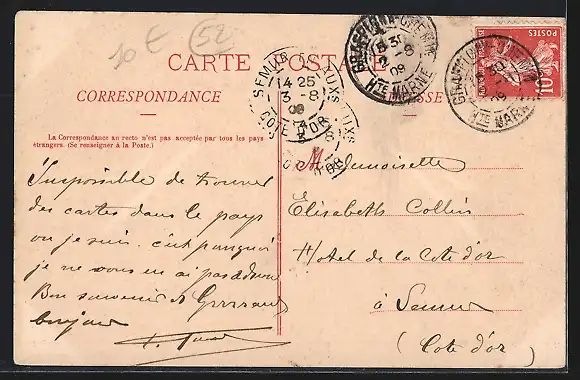 10 €
52
CARTE POSTALE
CORRESPONDANCE
La Correspondance au recto n'est pas acceptée par tous les pays
étrangers. (Se renseigner à la Poste.)
Impossible de trouver
des cartes dans le pays
ou je suis. c'est pourquoi
je ne vous en ai pas
Bon souvenir et
bonjour
SEMUR
14 25
3 -8
09
COTE D'OR
8 31
2 -8
09
HTE MARNE
HTE MARNE
POSTES
10
Mademoiselle
Elisabeth Collin
Hotel de la Cote d'or
à Semur
(Cote d'or)